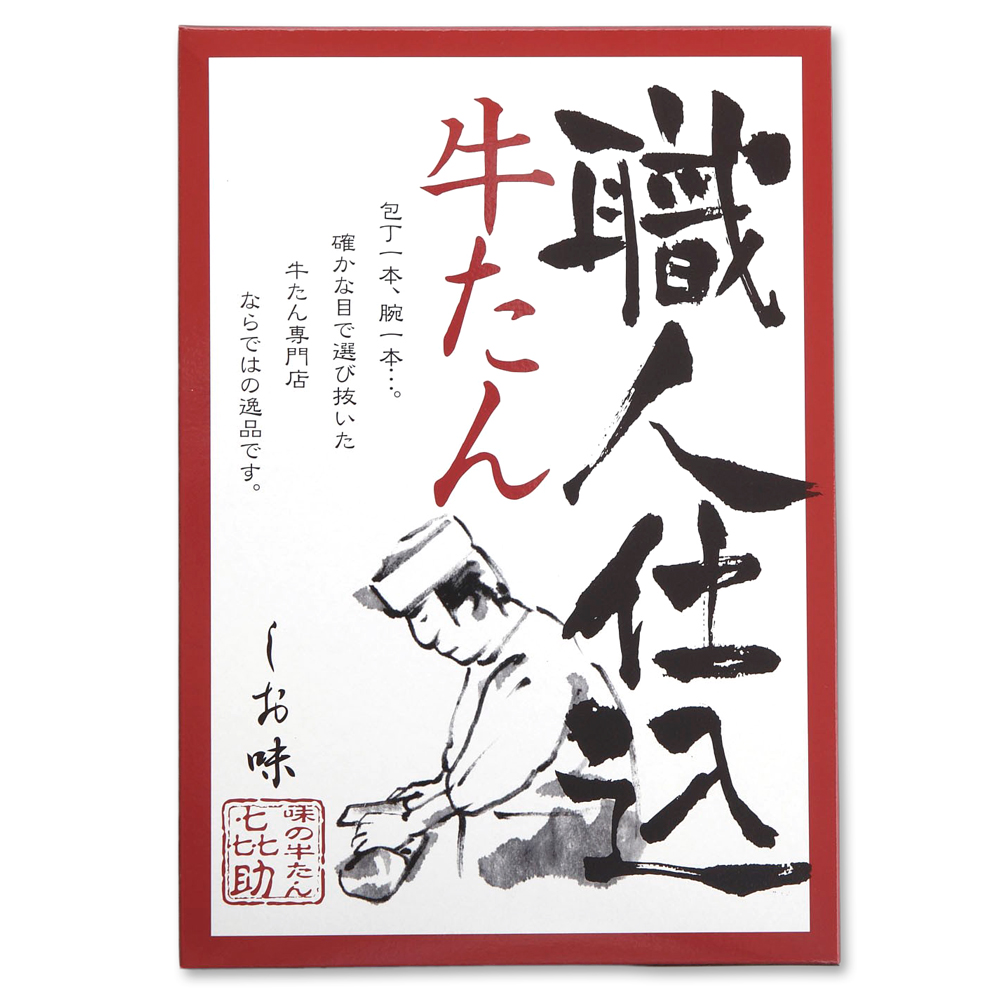 職人仕込
牛たん
包丁一本、腕一本…。
確かな目で選び抜いた
牛たん専門店
ならではの逸品です。
しお味
味の牛たん
㐂助